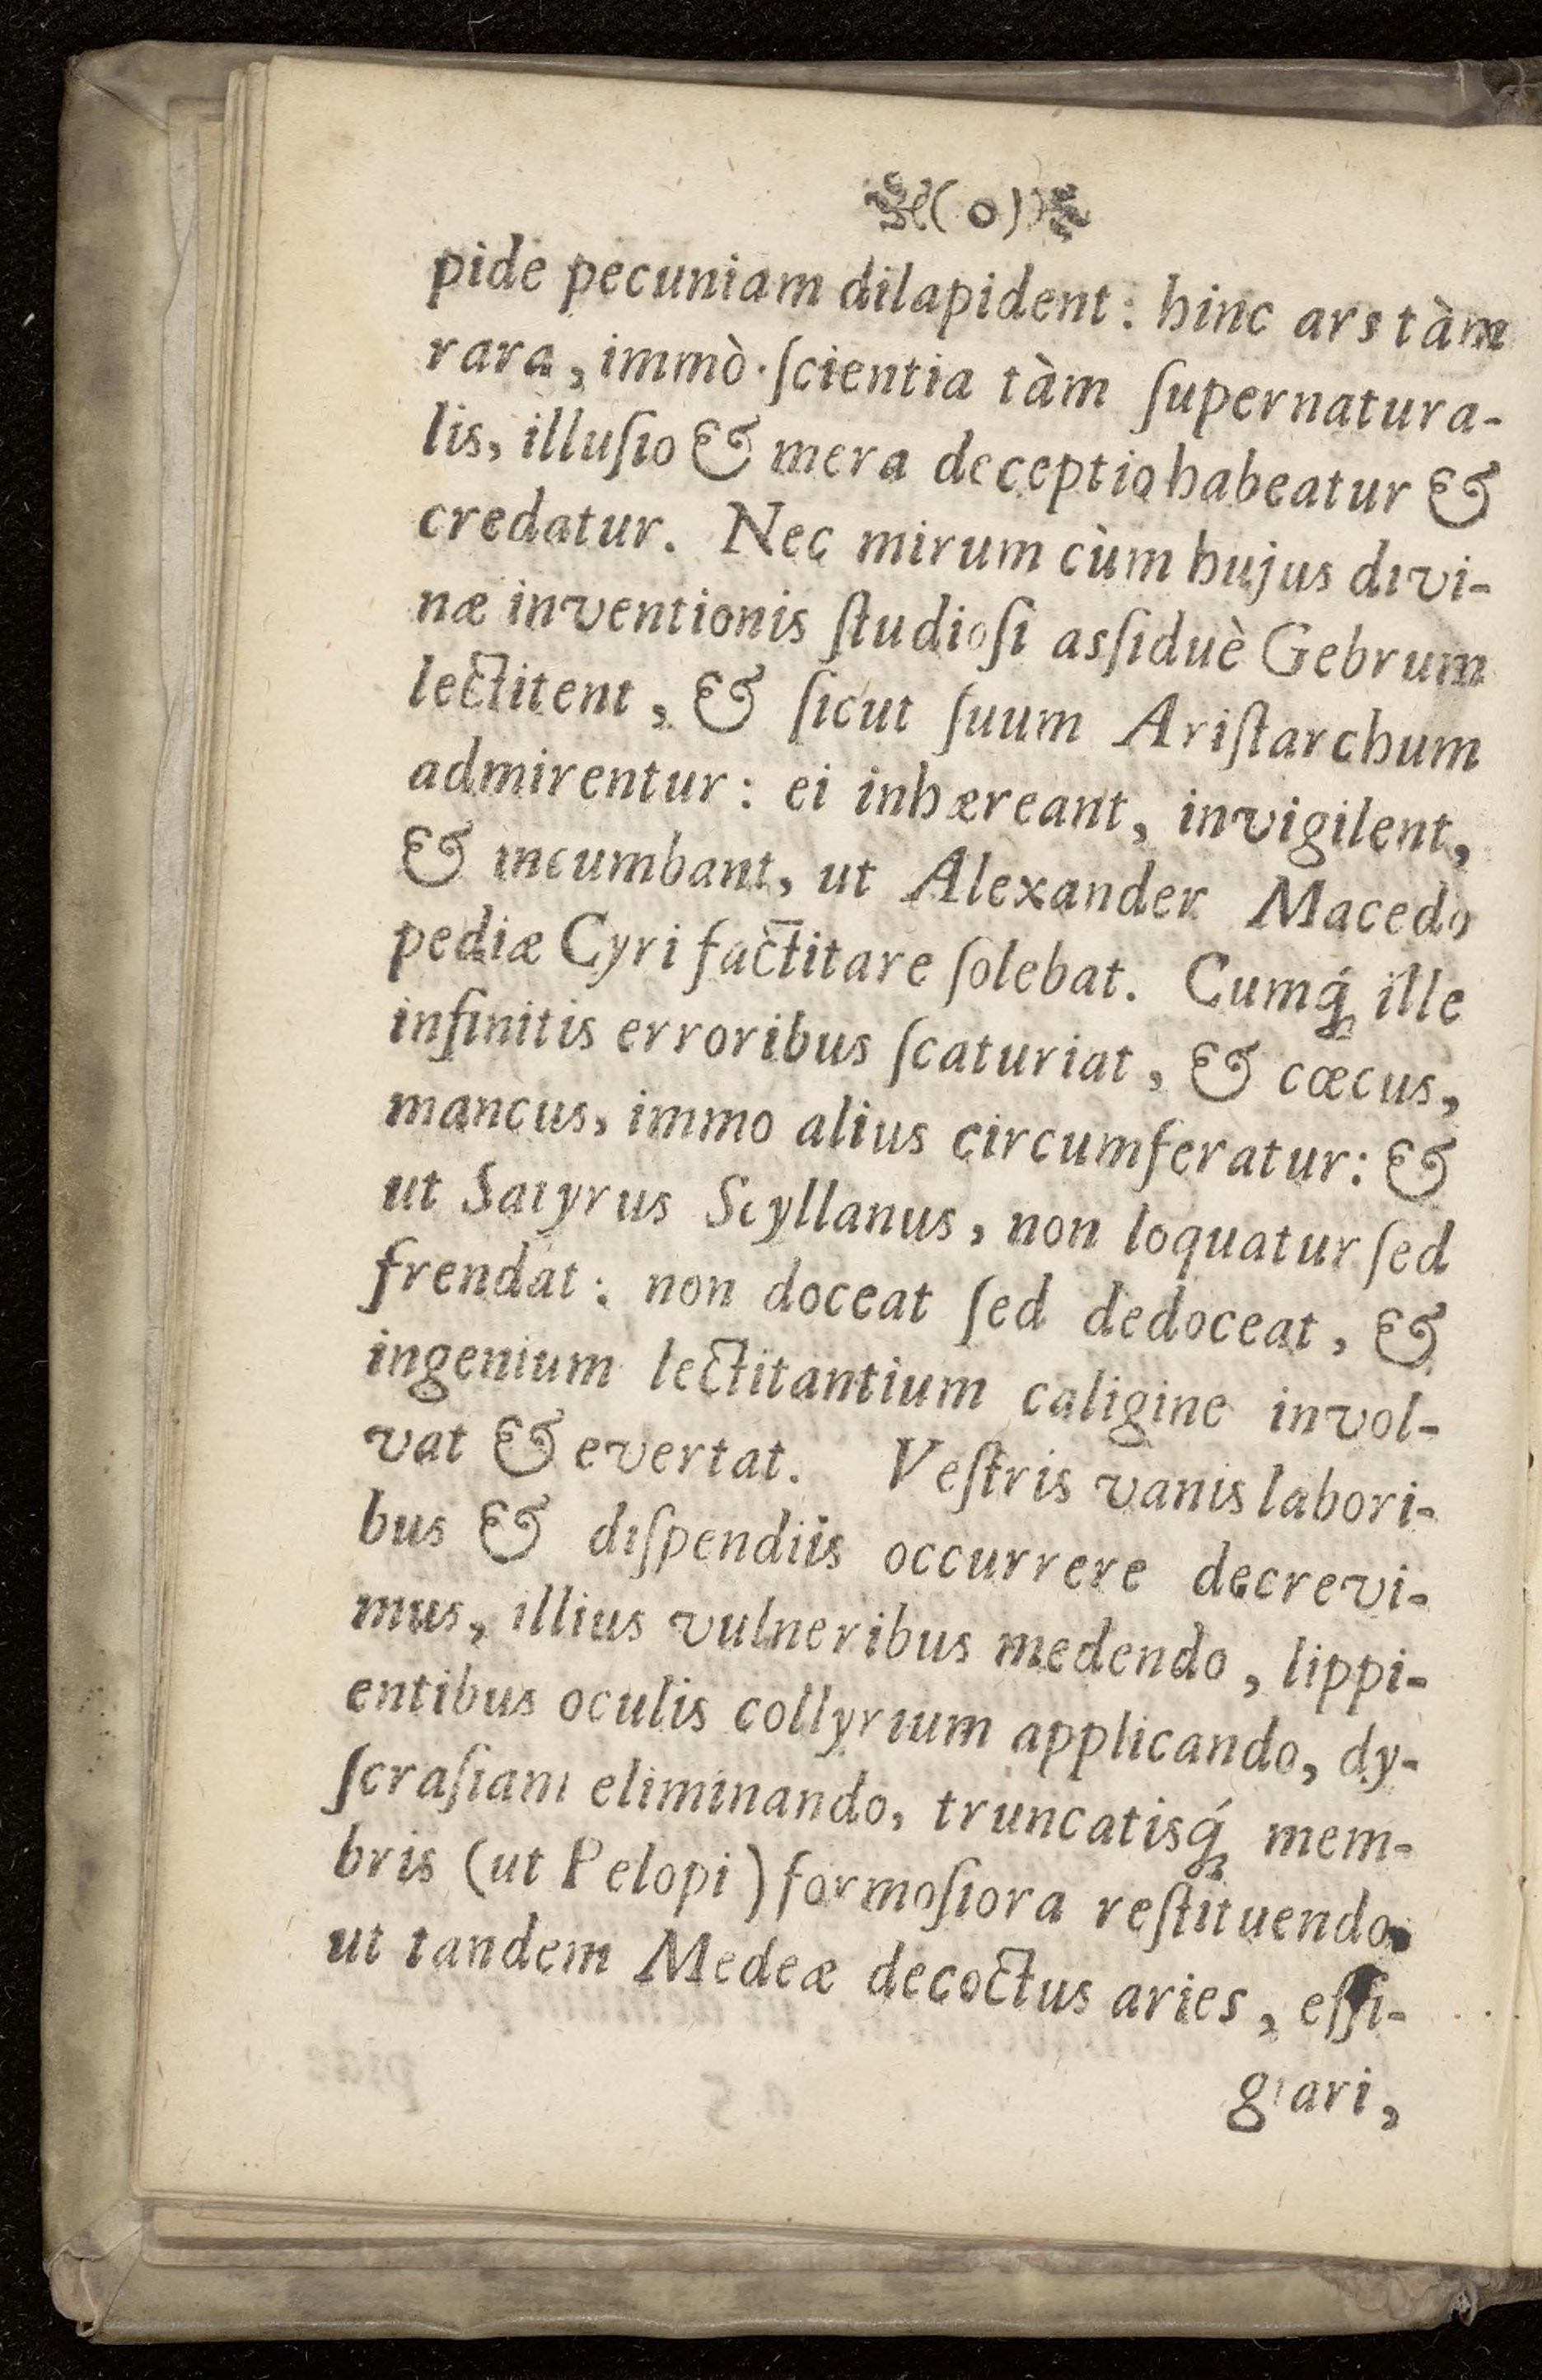 (o)
pide pecuniam dilapident: hinc ars tàm
rara, immò ſcientia tàm ſupernatura-
lis, illuſio & mera deceptio habeatur &
credatur. Nec mirum cùm hujus divi-
næ inventionis ſtudioſi asſiduè Gebrum
lectitent, & ſicut ſuum Ariſtarchum
admirentur: ei inhæreant, invigilent,
& incumbant, ut Alexander Macedo
pediæ Cyri factitare ſolebat. Cumq́; ille
infinitis erroribus ſcaturiat, & cœcus,
mancus, immo alius circumferatur: &
ut Satyrus Scyllanus, non loquatur ſed
frendat: non doceat ſed dedoceat, &
ingenium lectitantium caligine invol-
vat & evertat. Veſtris vanis labori-
bus & diſpendiis occurrere decrevi-
mus, illius vulneribus medendo, lippi-
entibus oculis collyrium applicando, dy-
ſcraſiam eliminando, truncatisq́; mem-
bris (ut Pelopi) formoſiora reſtituendo,
ut tandem Medeæ decoctus aries, effi-
giari,